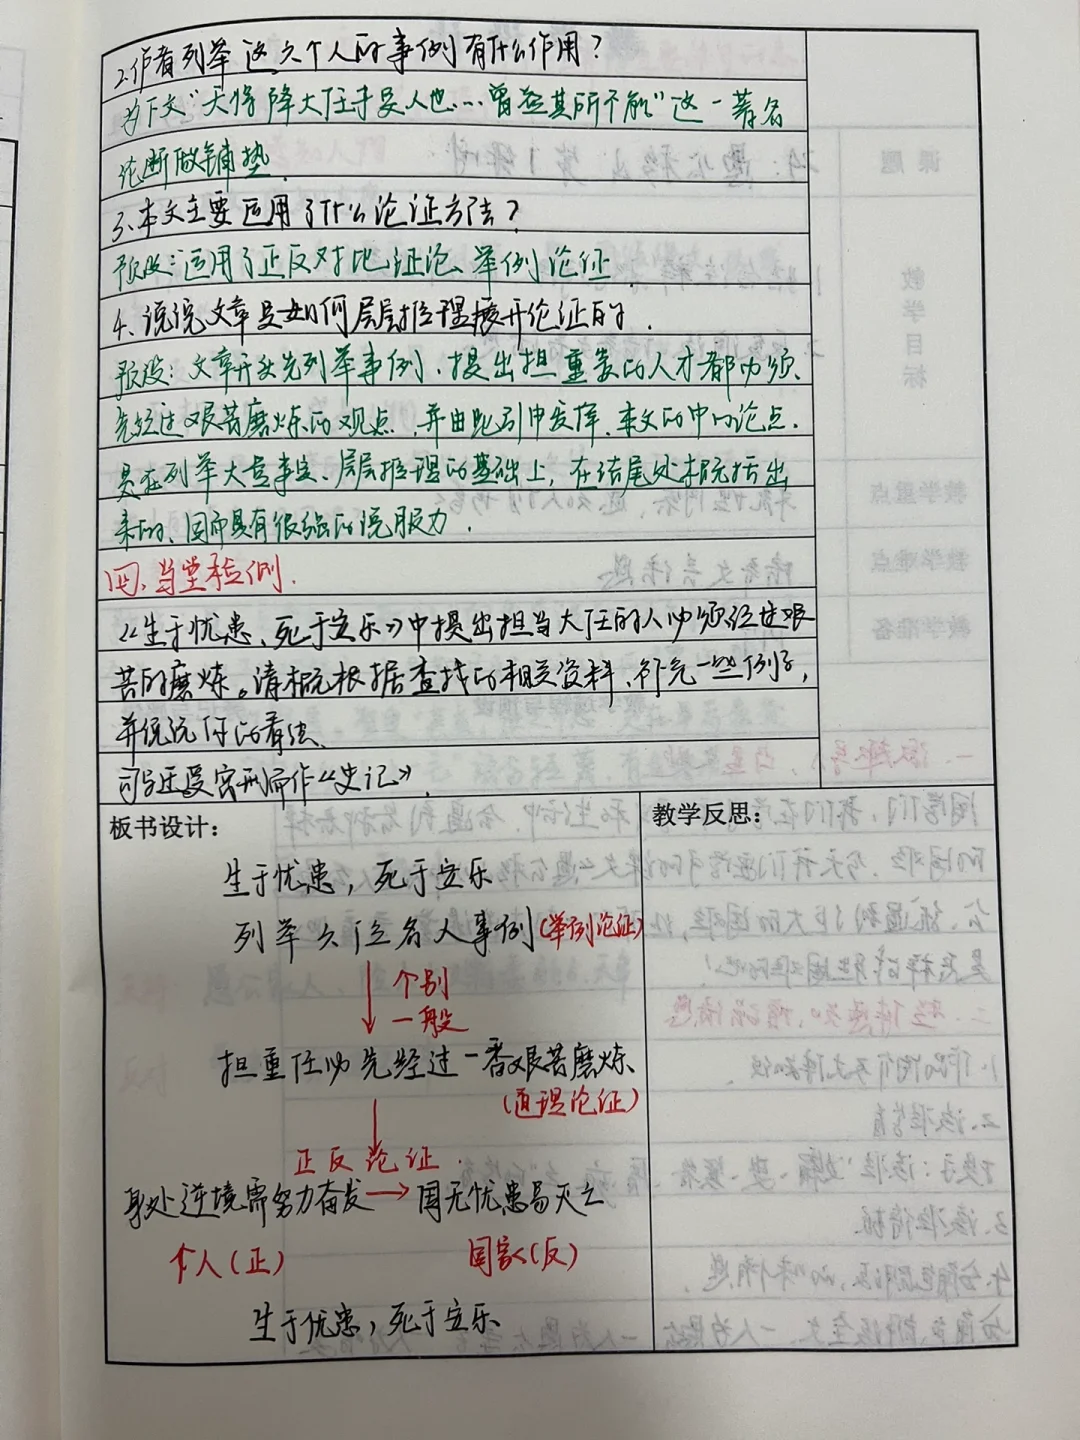 2.作者列举这六个人的事例有什么作用？
为下文“天将降大任于是人也…曾益其所不能”这一著名
论断做铺垫.
3.本文主要运用了什么论证方法？
预设:运用了正反对比论证、举例论证.
4、说说文章是如何层层推理展开论证的.
预设：文章开头先列举事例、提出担重任的人才都必须
先经过艰苦磨炼的观点.并由此引申发挥.本文的中心论点.
是在列举大量事实、层层推理的基础上，在结尾处概括出
来的、因而具有很强的说服力.
四、当堂检测.
《生于忧患、死于安乐》中提出担当大任的人必须经过艰
苦的磨炼。请根据查找的相关资料、补充一些例子，
并说说你的看法.
司马迁受宫刑而作《史记》.
板书设计：
教学反思：
生于忧患，死于安乐
列举六位名人事例(举例论证)
个别
一般
担重任必先经过一番艰苦磨炼
(道理论证)
正反论证.
身处逆境需努力奋发→国无忧患易灭亡
个人(正)
国家(反)
生于忧患，死于安乐